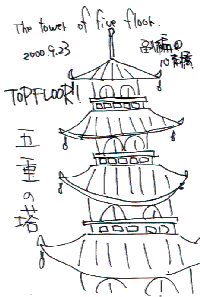 The tower of five floor.
2000 9.23
TOPFLOOR!!
五重の塔